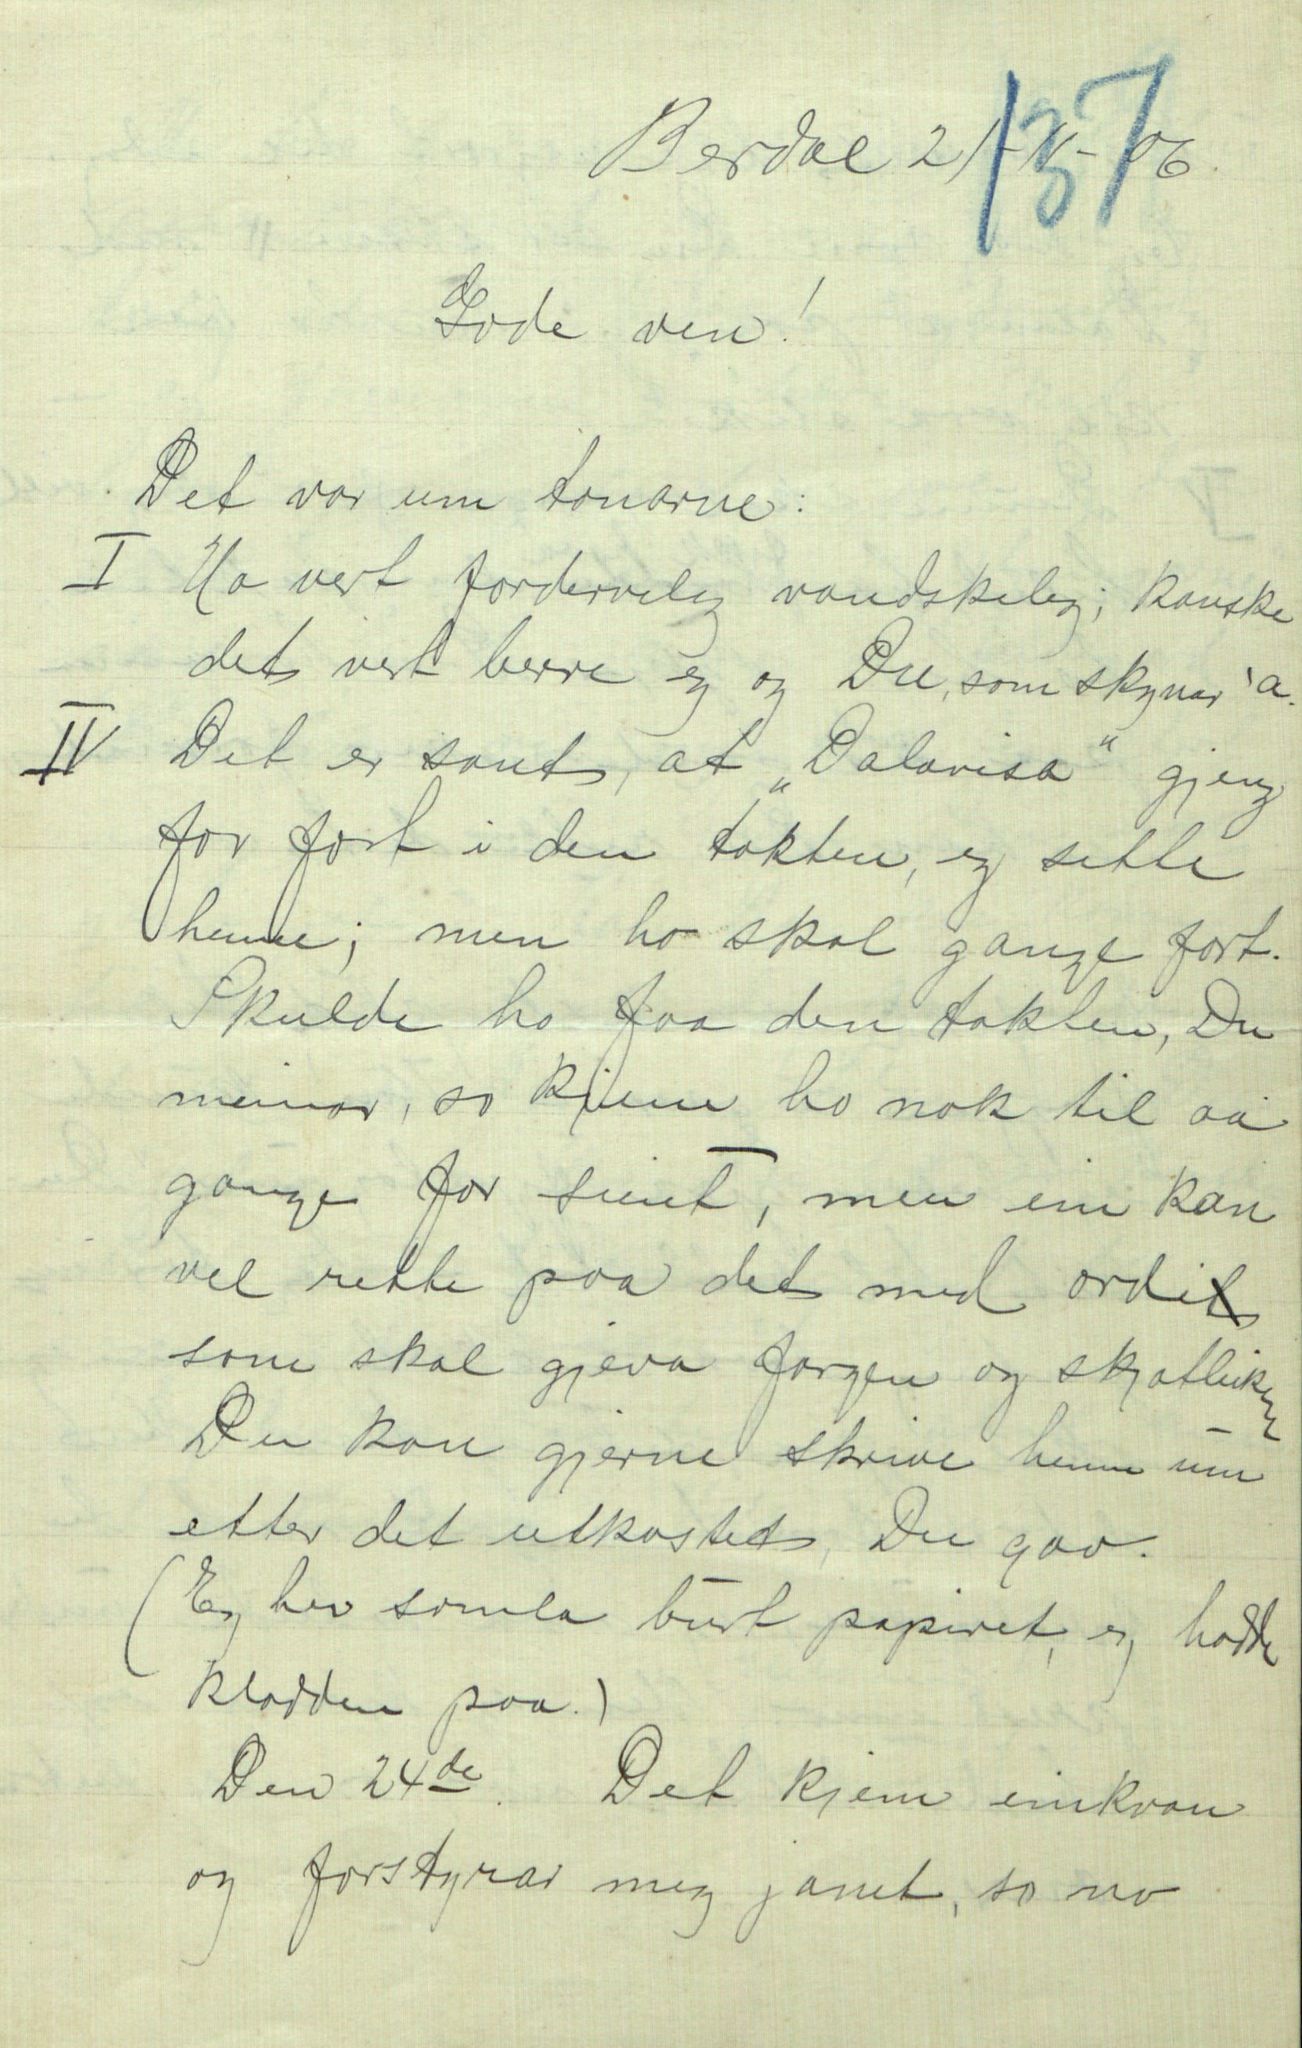 Berdal 21-V-06.
137
Gode ven!
Det var um tonarne:
I Ho vert fordervely vandskeleg; kanske
det vert berre eg og Du, som skynar 'a.
IV Det er sant, at „Dalavisa“ gjeng
for fort i den takten, eg sette
henne; men ho skal gange fort.
Skulde ho faa den takten, Du
meinar, so kjem ho nok til aa
gange for seint, men ein kan
vel rette paa det med ordi
som skal gjeva fargen og skjotleiken
Du kan gjerne skrive henne um
etter det utkastet, Du gav.
(Eg hev somla burt papiret, eg hadde
kladden paa.)
Den 24de. Det kjem einkvan
og forstyrar meg jamt, so no